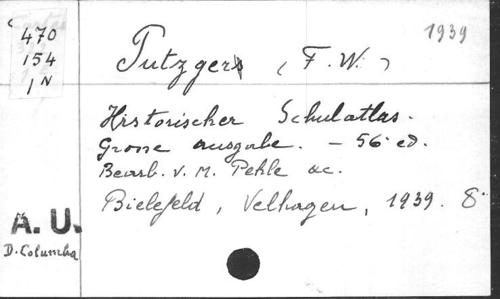 470
154
1 N
Putzger (F. W.)
1939
Historischer Schulatlas.
Grosse ausgabe. - 56 ed.
Bearb. v. M. Pehle &c.
Bielefeld, Velhagen, 1939. 8°
A. U.
D. Columba